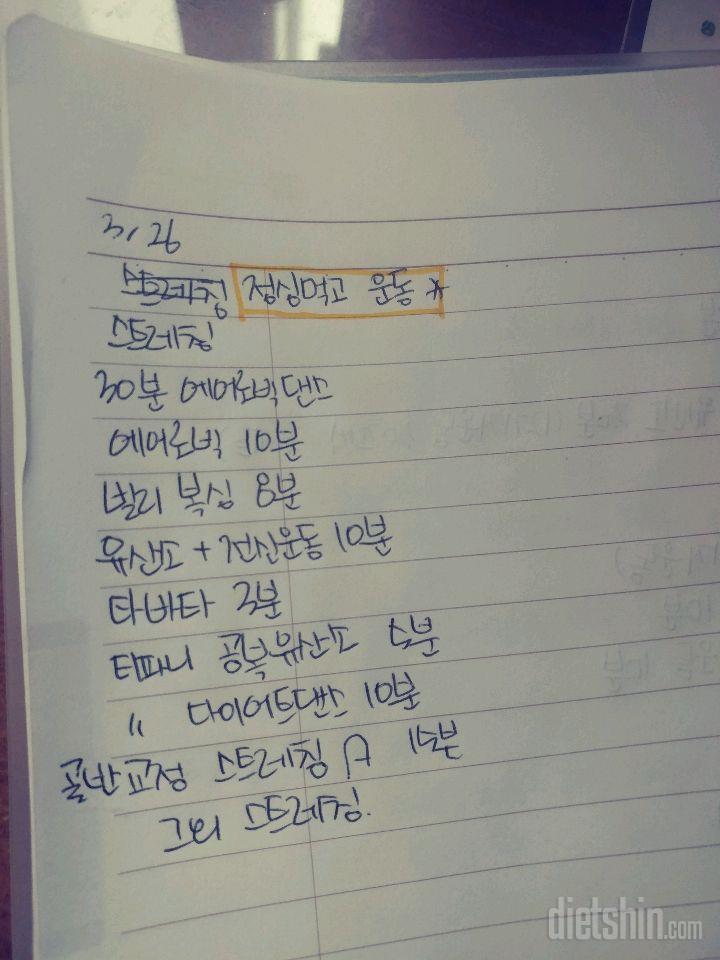 3, 26
스트레칭 점심먹고 운동 *
스트레칭
30분 에어로빅댄스
에어로빅 10분
발리 복싱 8분
유산소 + 전신운동 10분
타바타 3분
티파니 공복유산소 5분
〃 다이어트댄스 10분
골반교정 스트레칭 A 15분
그외 스트레칭.
dietshin.com